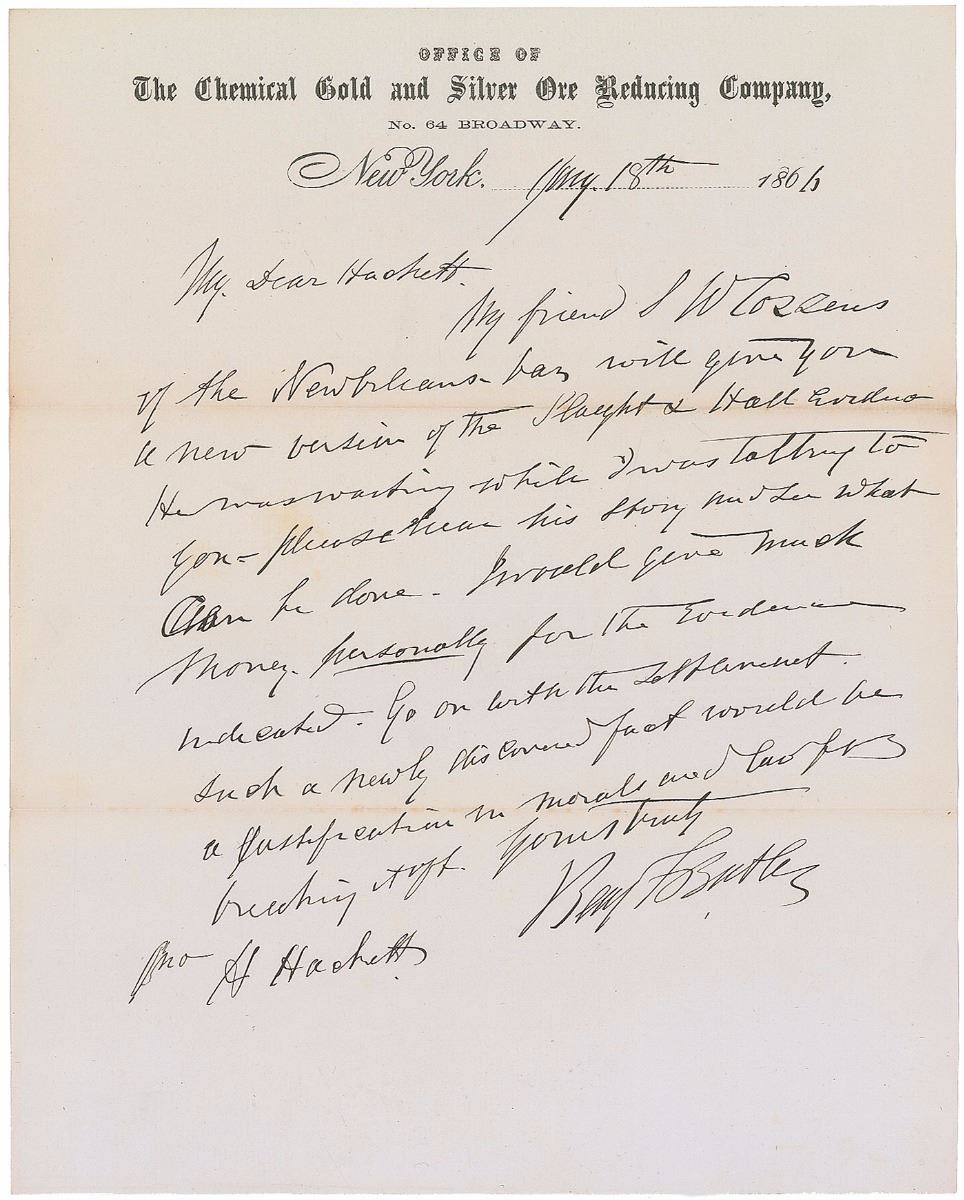 OFFICE OF
The Chemical Gold and Silver Ore Reducing Company,
No. 64 BROADWAY.
New York. 18th 186
My Dear Hackett.
My friend S W Cozzens
of the New Orleans bar will give you
a new version of the & Hall Evidence
He was waiting while I was talking to
you - please hear his story and see what
Can be done - I would give much
money personally for the Evidence
indicated - Go on with the settlement.
Such a newly discovered fact would be
a justification in morals and law for
breaking it off. Yours truly
Benj F Butler
Jno H Hackett